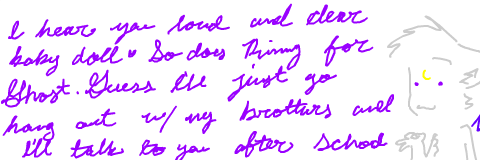 I hear you loud and clear
baby doll. So does Thinny for
Ghost. Guess I'll just go
hang out w/ my brothers and
I'll talk to you after school